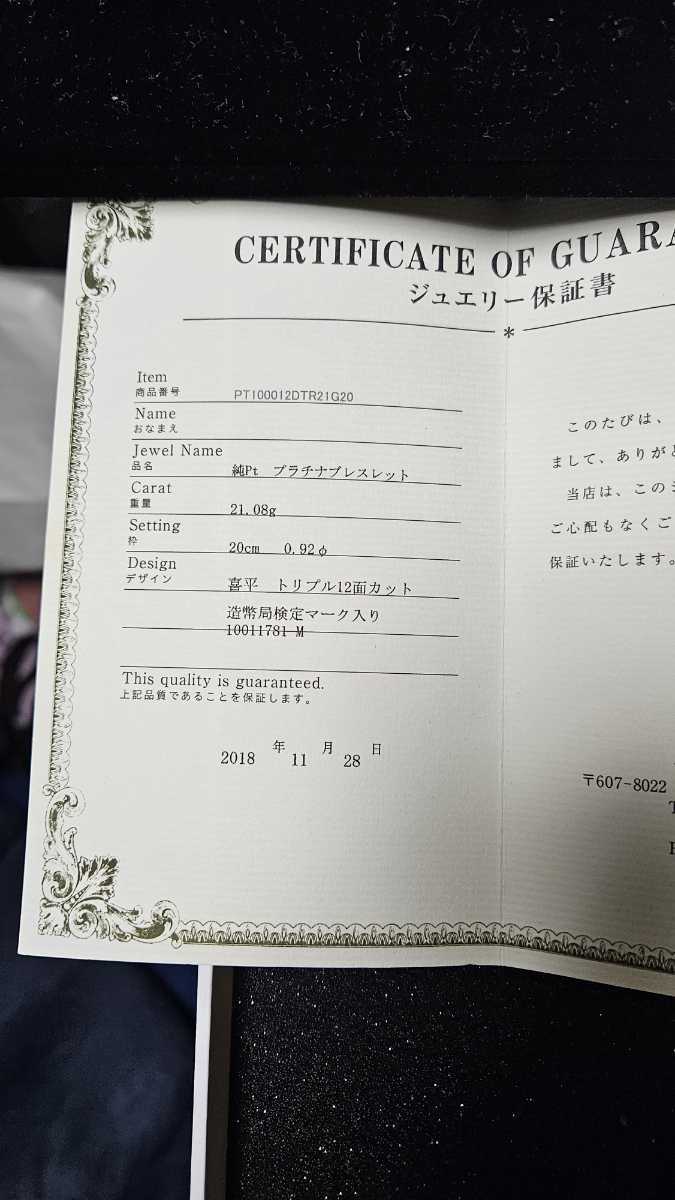 CERTIFICATE OF GUARA
ジュエリー保証書
*
Item
商品番号 PT100012DTR21G20
Name
おなまえ
Jewel Name
品名 純Pt プラチナブレスレット
Carat
重量 21.08g
Setting
枠 20cm 0.92φ
Design
デザイン 喜平 トリプル12面カット
造幣局検定マーク入り
10011781-M
This quality is guaranteed.
上記品質であることを保証します。
2018 年 11 月 28 日
このたびは、
まして、ありがと
当店は、このジ
ご心配もなくご
保証いたします。
〒607-8022